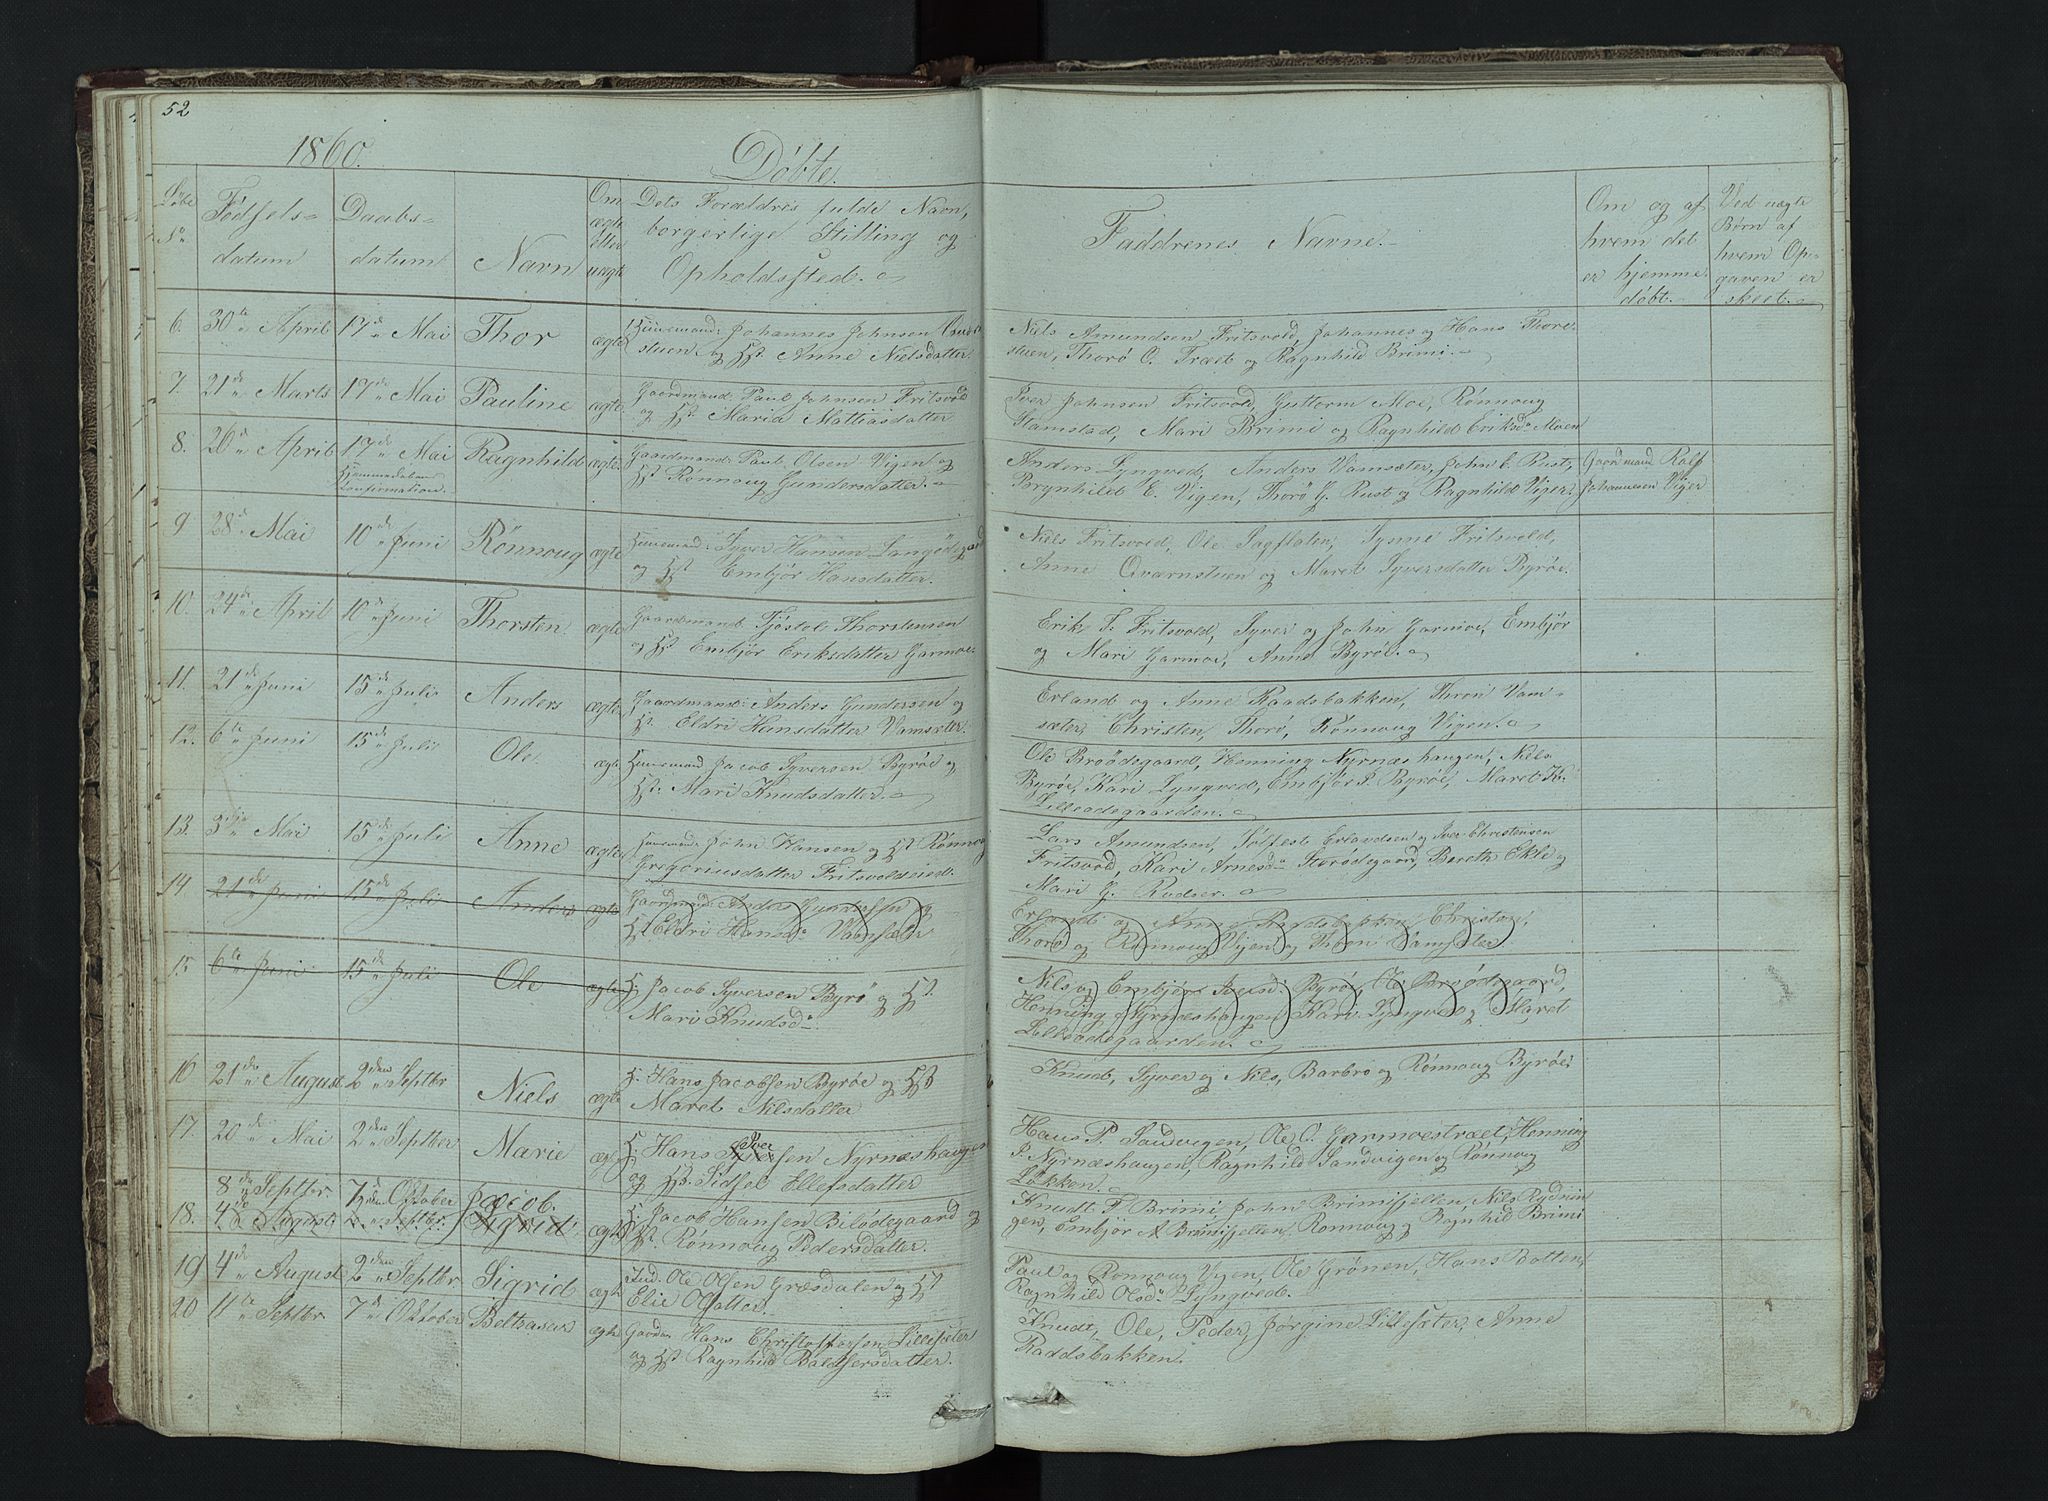 52
1860.
Døbte.
Løbe N° Fødsels- datum Daabs- datum Navn Om ægte eller uægte Dets Forældres fulde Navn, borgerlige Stilling og Opholdssted. Faddrenes Navne. Om og af hvem det er hjemme- døbt. Ved uægte Børn af hvem Op- gaven er skeet.
6. 30te April 17de Mai Thor ægte Huusmand: Johannes Johnsen
stuen og H. Anne Nielsdatter. Niels Amundsen Fritsvold, Johannes og Hans Thore-
stuen, Thorø O. Træet og Ragnhild Brimi.
7. 21de Marts 17de Mai Pauline ægte Gaardmand: Paul Johnsen Fritsvold
og H. Maria Mattiasdatter Iver Johnsen Fritsvold, Guttorm Moe, Rønnoug
Hamstad, Mari Brimi og Ragnhild Eriksd. Moen
8. 26de April 17de Mai Ragnhild ægte Gaardmand: Paul Olsen Vigen og
Hjemmedaaben Confirmation.
H. Rønnoug Gundersdatter. Anders Lyngved, Anders Vamsæter, John E. Rust,
Brynhild E. Vigen, Thorø G. Rust og Ragnhild Vigen. Gaardmand Rolf
Johannesen Viger
9 28de Mai 10de Juni Rønnoug ægte Huusmand: Syver Hansen
og H. Embjør Hansdatter. Niels Fritsvold, Ole Sagflaten, Synne Fritsvold,
Anne Qværnstuen og Maret Syversdatter Byrøe.
10. 24de April 10de Juni Thorsten. ægte Gaardmand Tjøstol Thorstensen
og H. Embjør Eriksdatter Garmoe. Erik T. Fritsvold, Syver og John Garmoe, Embjør
og Mari Garmoe, Anne Byrøe.
11. 21de Juni 15de Juli Anders ægte Gaardmand: Anders Gundersen og
H. Eldri Hansdatter Vamsæter. Erland og Anne Raadsbakken, Thron Vam-
sæter, Christen, Thorø, Rønnoug Vigen.
12. 6te Juni 15de Juli Ole ægte Huusmand Jacob Syversen Byrøe og
H. Mari Knudsdatter. Ole Broødsgaard, Henning Nyrnæshaugen, Niels
Byrøe, Kari Lyngved, Embjør I. Byrøe, Maret K.
Lilleødegaarden.
13. 3die Mai 15de Juli Anne ægte Huusmand: John Hansen og H. Rønnoug
Gregoriusdatter Fritsvoldeied. Lars Amundsen, Tolfest Erlandsen og Iver Christensen
Fritsvold, Kari Arnesd. Storødegaard, Bereth Ekle og
Mari G. Rudser.
14 21de Juni 15de Juli Anders ægte Gaardmand: Anders Gundersen og
H. Eldri Hansd. Vamsæter Erland og Anne Raadsbakken, Christen,
Thorø og Rønnoug Vigen, og Thron Vamsæter
15 6te Juni 15de Juli Ole ægte H. Jacob Syversen Byrø og H.
Mari Knudsd. Nils og Embjør Iversd. Byrø, Ole Broødsgaard,
Henning Nyrnæshaugen, Kari Lyngved og Maret
Lilleødegaarden.
16 21de August 2den Septbr Niels ægte H. Hans Jacobsen Byrøe og H.
Maret Nilsdatter Knud, Syver og Nils, Barbro og Rønnoug Byrøe.
17. 20de Mai 2den Septber Marie ægte H. Hans Iversen Nyrnæshaugen
og H. Sidsel Ellefsdatter Hans P. Sandvigen, Ole O. Garmoestræet, Henning
P. Nyrnæshaugen, Ragnhild Sandvigen og Rønnoug
Løkken.
8de Septbr. 7de Oktober Jacob.
18. 4de August 2den Septbr. Sigrid ægte H. Jacob Hansen Bilødegaard og
H. Rønnoug Pedersdatter. Knudt T. Brimi, John Brimifjellen, Nils Rydnin
gen, Embjør A Brimifjellen, Rønnoug og Ragnhild Brimi
19 4de August 2den Septbr Sigrid ægte Ind. Ole Olsen Græsdalen og H.
Elie Olsdatter. Paul og Rønnoug Vigen, Ole Grønen, Hans Botten,
Ragnhild Olsd. Lyngved.
20 11te Septbr. 7de Oktober Beltasar ægte Gaardm. Hans Christoffersen Lillesæter
og H. Ragnhild Baldsersdatter. Knudt, Ole, Peder, Jørgine Lillesæter, Anne
Raddsbakken.